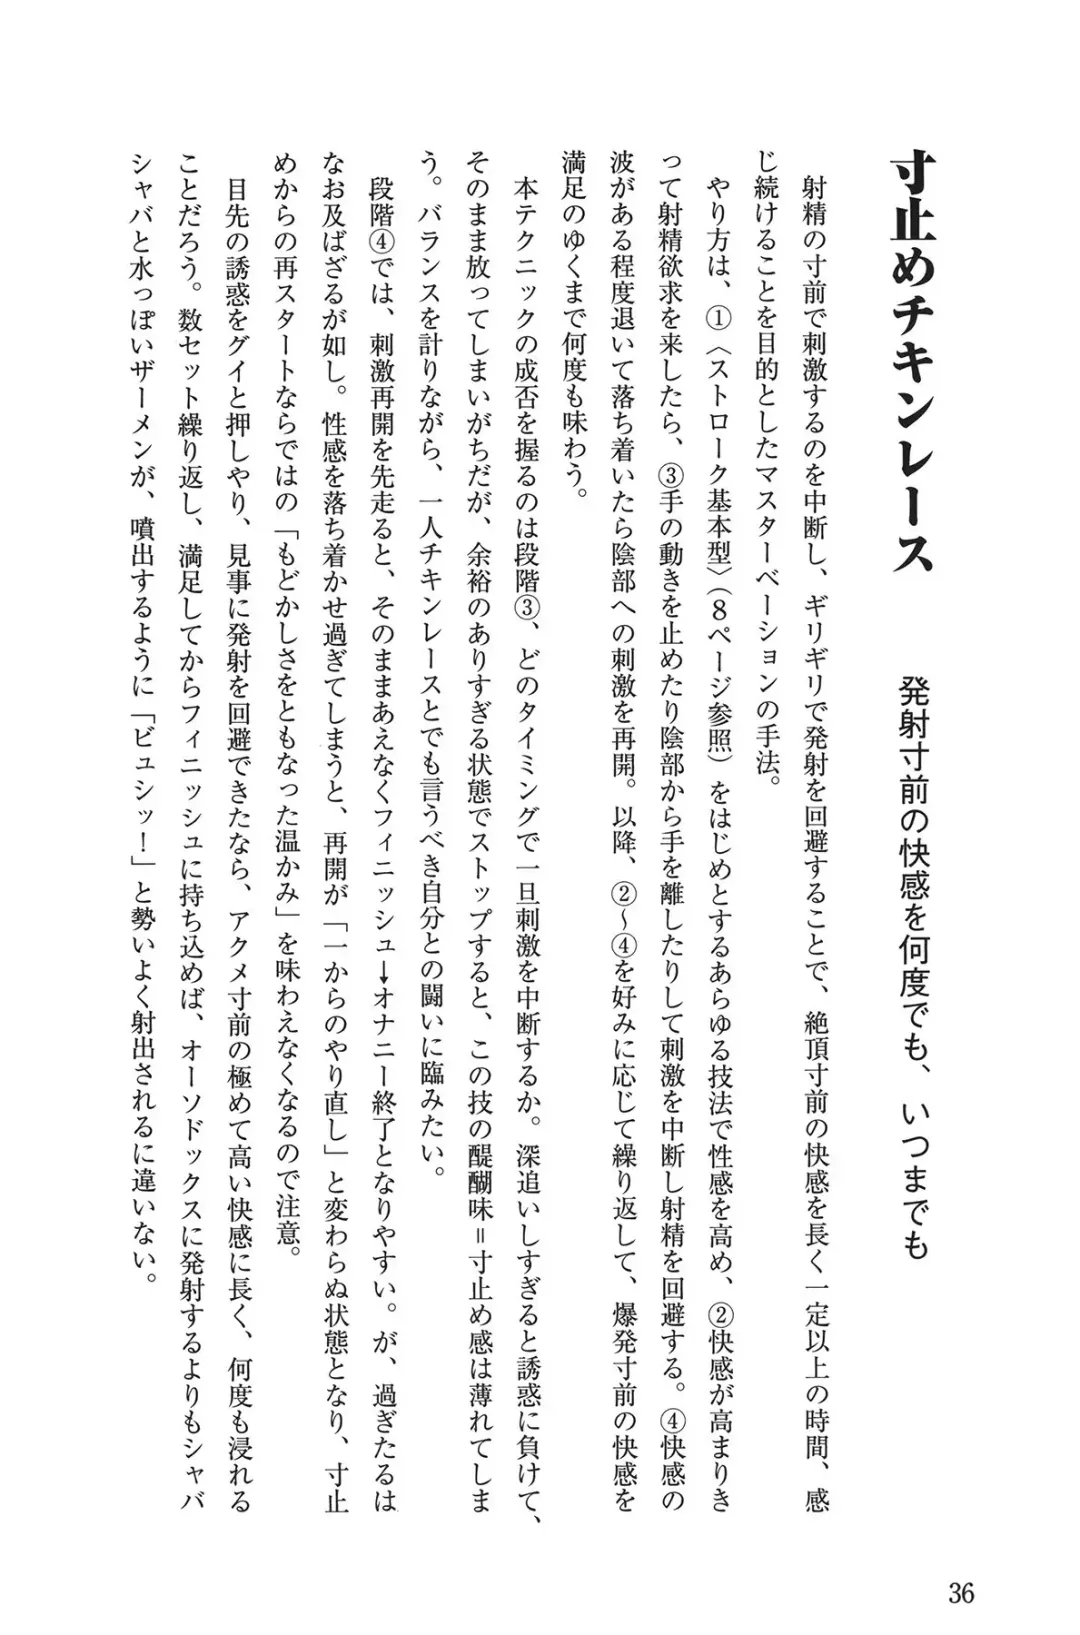 寸止めチキンレース　発射寸前の快感を何度でも、いつまでも
射精の寸前で刺激するのを中断し、ギリギリで発射を回避することで、絶頂寸前の快感を長く一定以上の時間、感
じ続けることを目的としたマスターベーションの手法。
やり方は、①〈ストローク基本型〉（8ページ参照）をはじめとするあらゆる技法で性感を高め、②快感が高まりき
って射精欲求を来したら、③手の動きを止めたり陰部から手を離したりして刺激を中断し射精を回避する。④快感の
波がある程度退いて落ち着いたら陰部への刺激を再開。以降、②〜④を好みに応じて繰り返して、爆発寸前の快感を
満足のゆくまで何度も味わう。
本テクニックの成否を握るのは段階③、どのタイミングで一旦刺激を中断するか。深追いしすぎると誘惑に負けて、
そのまま放ってしまいがちだが、余裕のありすぎる状態でストップすると、この技の醍醐味＝寸止め感は薄れてしま
う。バランスを計りながら、一人チキンレースとでも言うべき自分との闘いに臨みたい。
段階④では、刺激再開を先走ると、そのままあえなくフィニッシュ→オナニー終了となりやすい。が、過ぎたるは
なお及ばざるが如し。性感を落ち着かせ過ぎてしまうと、再開が「一からのやり直し」と変わらぬ状態となり、寸止
めからの再スタートならではの「もどかしさをともなった温かみ」を味わえなくなるので注意。
目先の誘惑をグイと押しやり、見事に発射を回避できたなら、アクメ寸前の極めて高い快感に長く、何度も浸れる
ことだろう。数セット繰り返し、満足してからフィニッシュに持ち込めば、オーソドックスに発射するよりもシャバ
シャバと水っぽいザーメンが、噴出するように「ビュシッ！」と勢いよく射出されるに違いない。
36